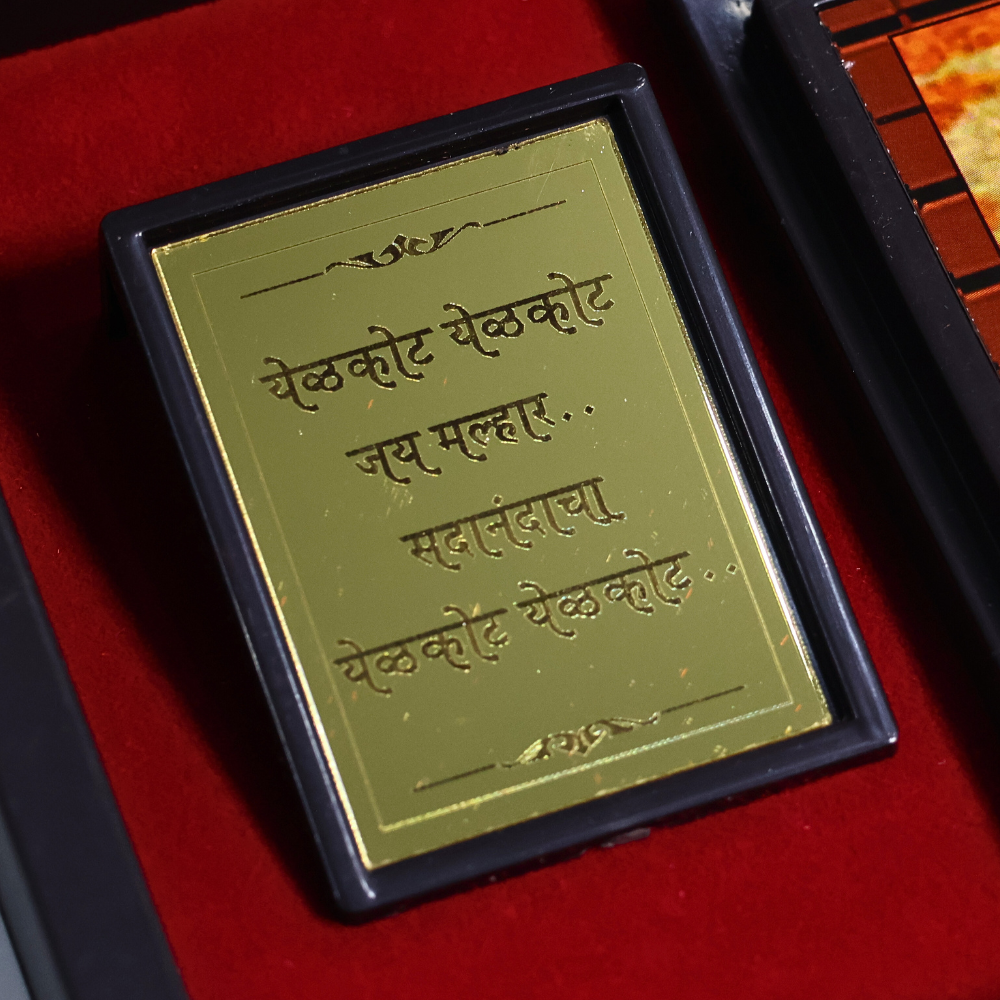 येळकोट येळकोट
जय मल्हार..
सदानंदाचा
येळकोट येळकोट..